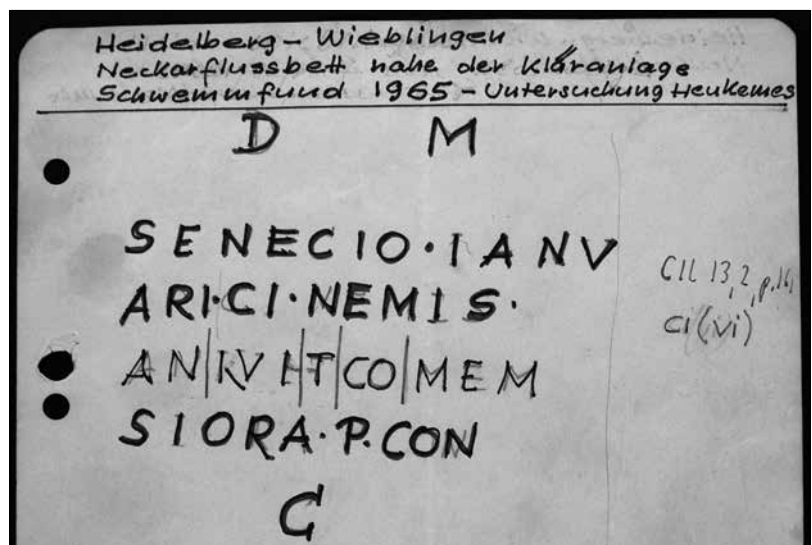 Heidelberg – Wieblingen
Neckarflussbett nahe der Kläranlage
Schwemmfund 1965 – Untersuchung Heukemes
D M
SENECIO·IANV
ARI·CI·NEMIS·
AN|IVI|T|CO|MEM
SIORA·P.CON
C
CIL 13,2, p.
CI(VI)